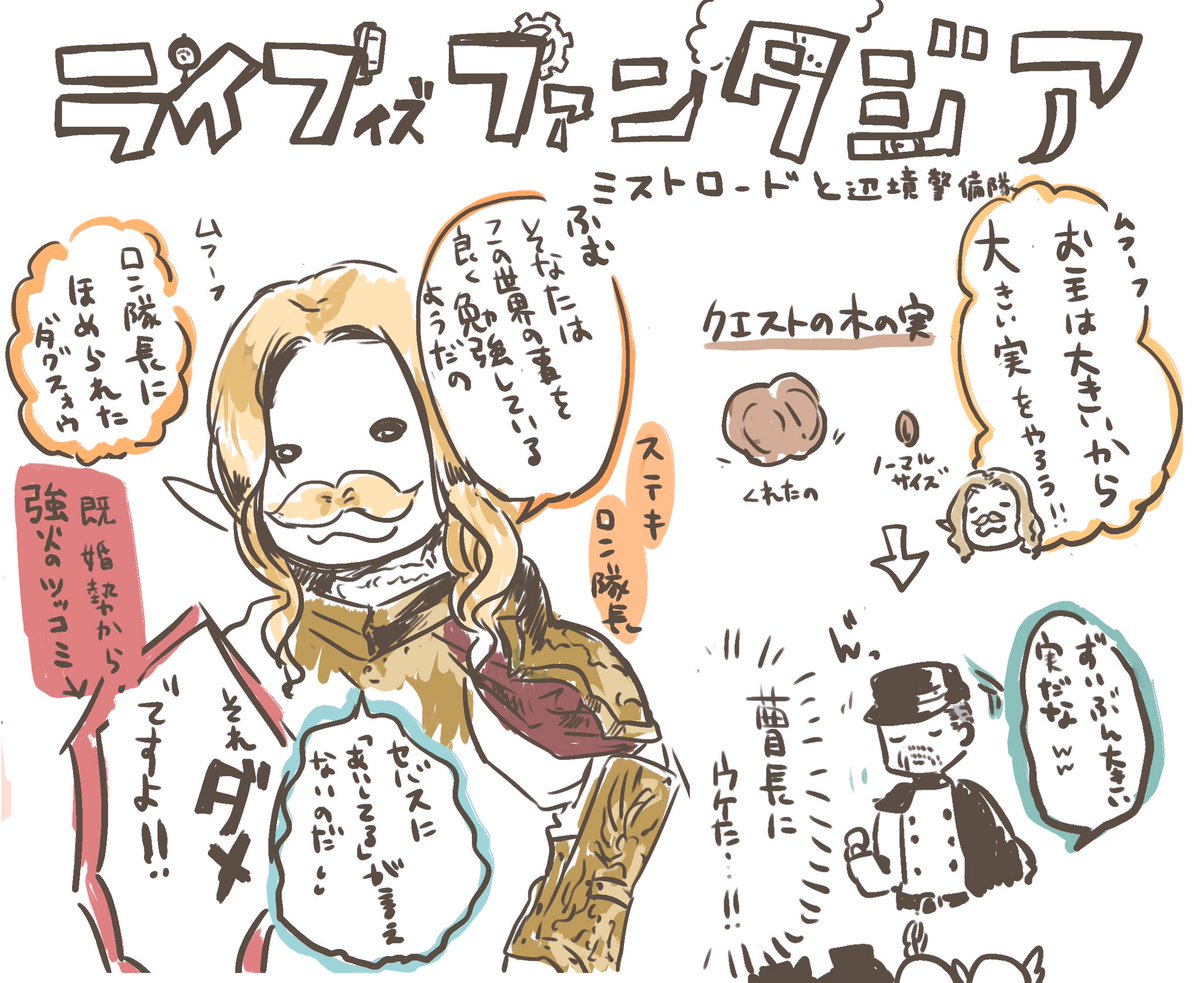 ライブイズファンタジア
ミストロードと辺境警備隊
ムフーフ
ロン隊長に
ほめられた
ダグスキウ
ふむ
そなたは
この世界の事を
良く勉強している
ようだの
ステキ
ロン隊長
既婚勢から
強火のツッコミ
それ
ダメ
ですよ!!
セバスに
「あいしてる」が言え
ないのだ…
クエストの木の実
くれたの
ノーマル
サイズ
ムフーフー
お主は大きいから
大きい実をやろう!!
ずいぶん大きい
実だなww
曹長に
ウケた…!!